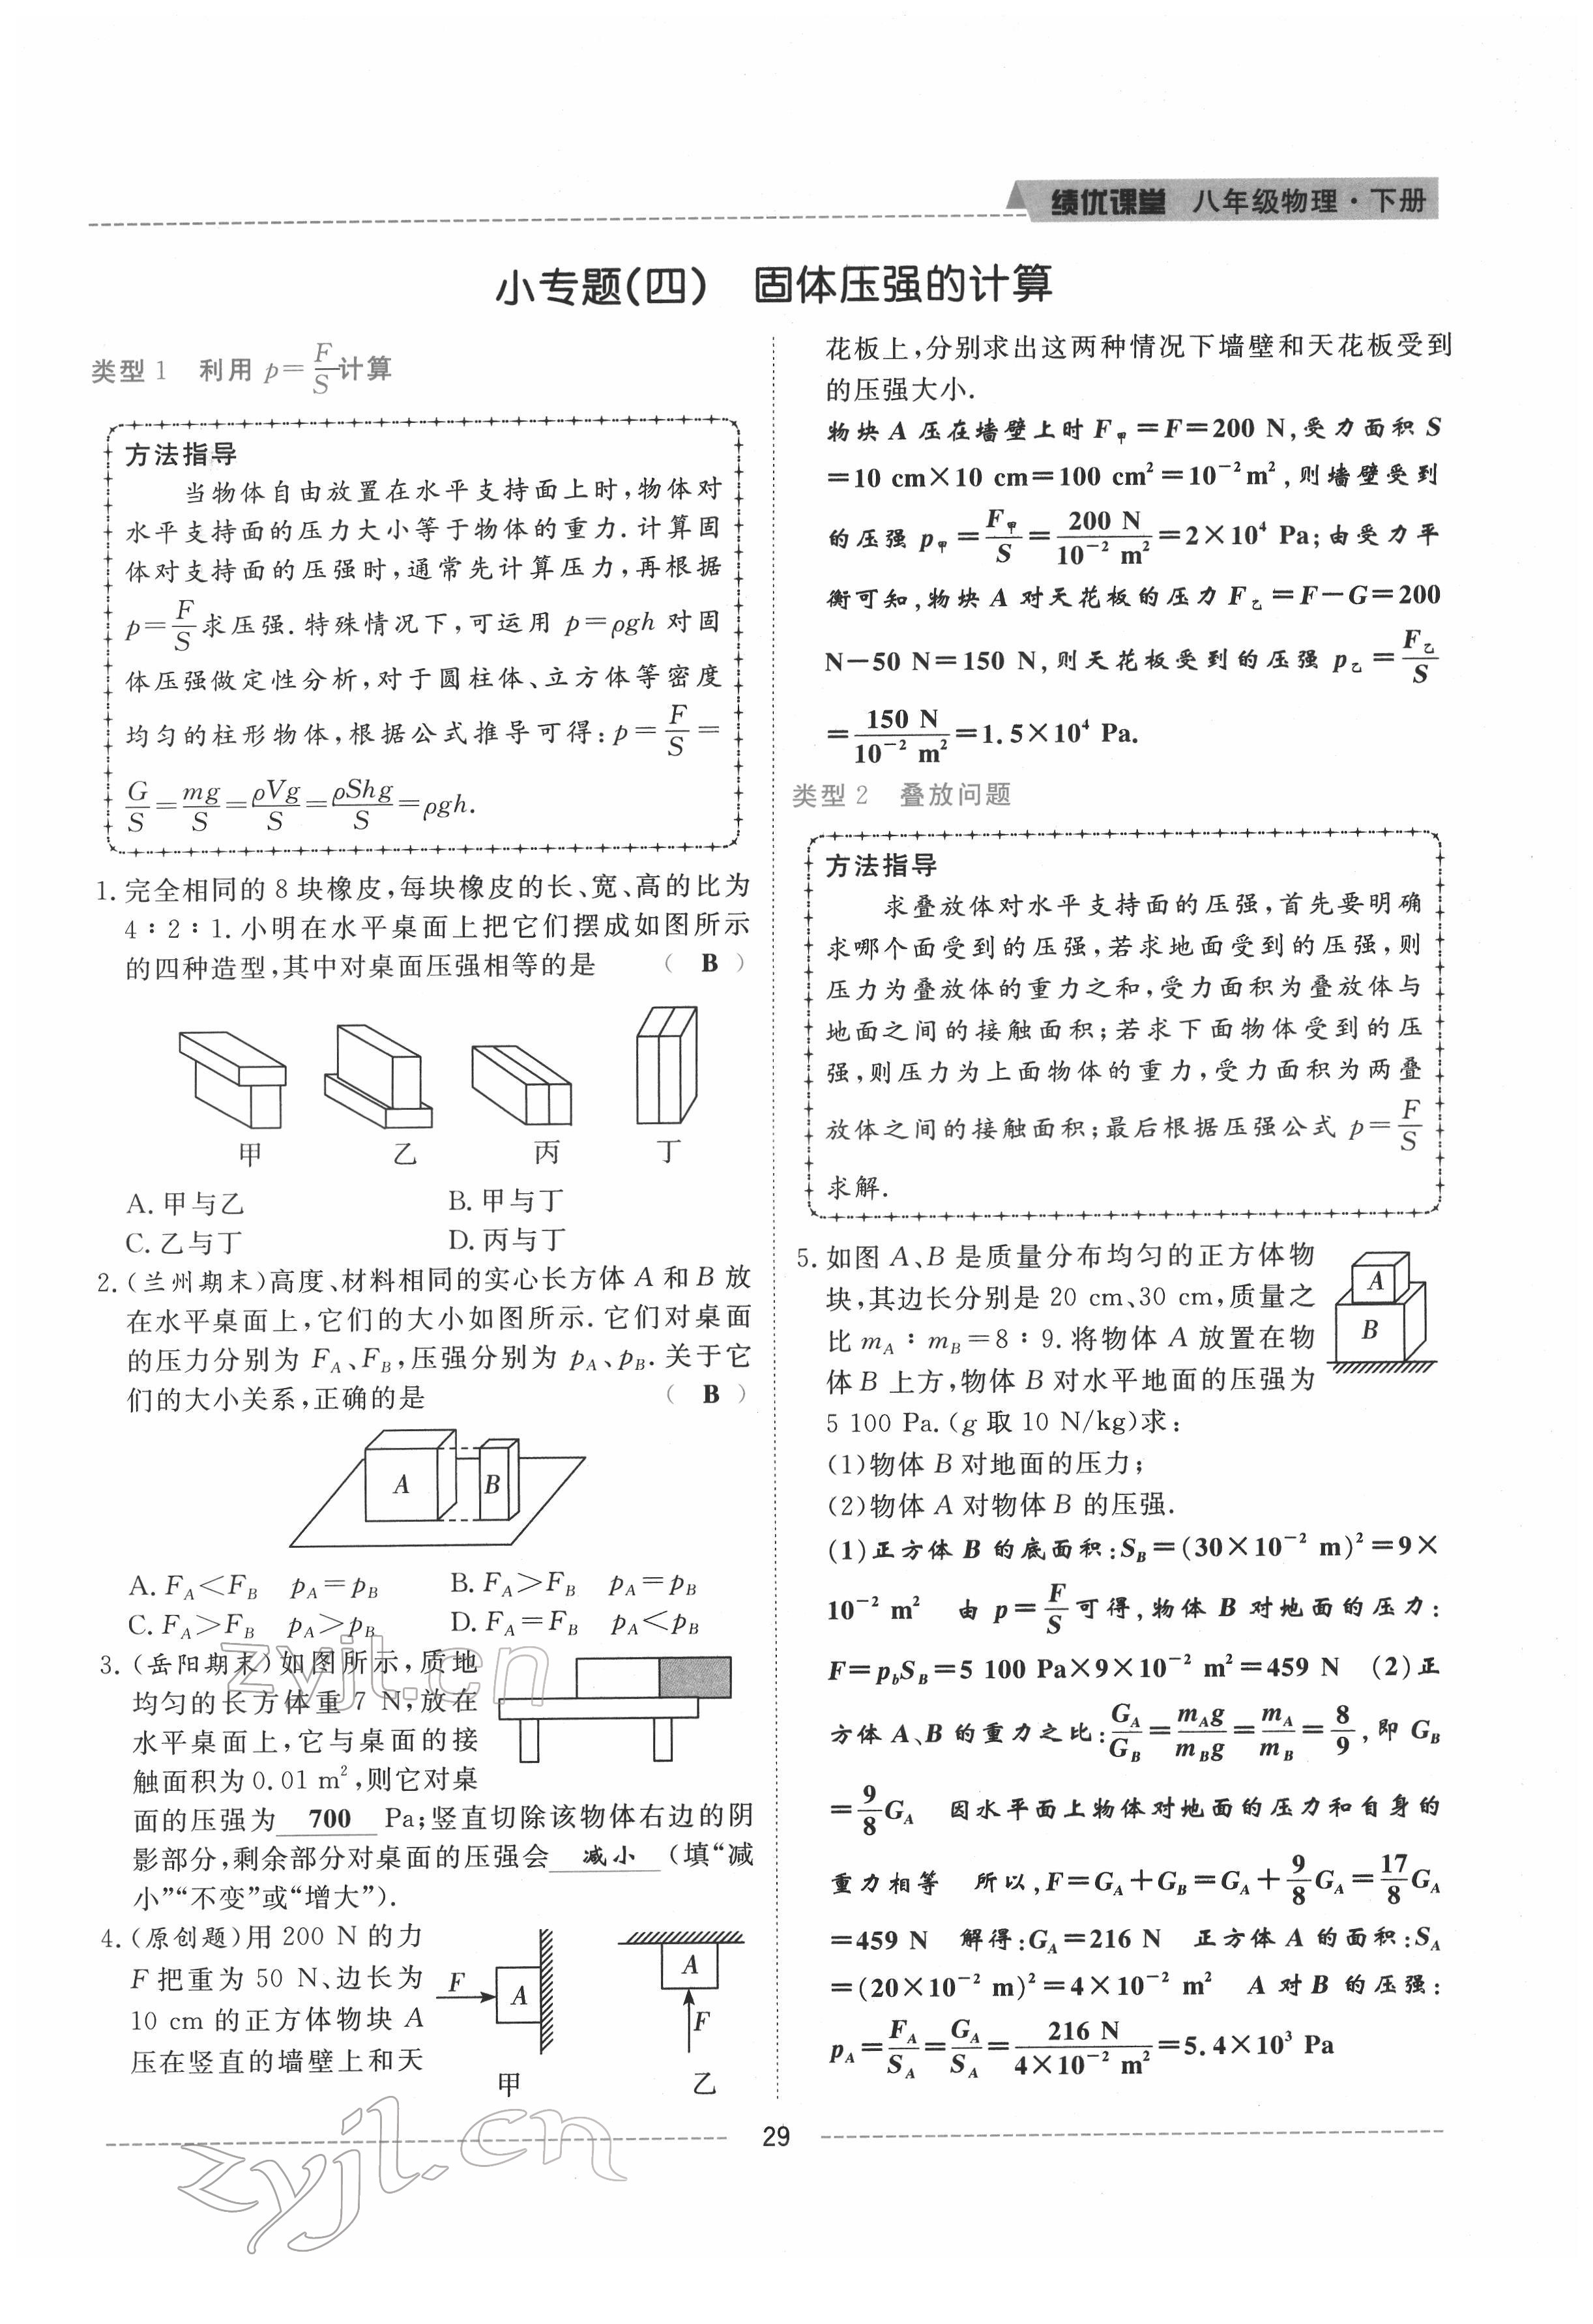 绩优课堂 八年级物理·下册
小专题(四) 固体压强的计算
类型1 利用 p=F/S 计算
方法指导
当物体自由放置在水平支持面上时,物体对
水平支持面的压力大小等于物体的重力.计算固
体对支持面的压强时,通常先计算压力,再根据
p=F/S求压强.特殊情况下,可运用 p=ρgh 对固
体压强做定性分析,对于圆柱体、立方体等密度
均匀的柱形物体,根据公式推导可得:p=F/S=
G/S=mg/S=ρVg/S=ρShg/S=ρgh.
1.完全相同的 8 块橡皮,每块橡皮的长、宽、高的比为
4∶2∶1.小明在水平桌面上把它们摆成如图所示
的四种造型,其中对桌面压强相等的是 ( B )
甲 乙 丙 丁
A.甲与乙 B.甲与丁
C.乙与丁 D.丙与丁
2.(兰州期末)高度、材料相同的实心长方体 A 和 B 放
在水平桌面上,它们的大小如图所示.它们对桌面
的压力分别为 F_A、F_B,压强分别为 p_A、p_B.关于它
们的大小关系,正确的是 ( B )
A B
A. F_A<F_B p_A=p_B B. F_A>F_B p_A=p_B
C. F_A>F_B p_A>p_B D. F_A=F_B p_A<p_B
3.(岳阳期末)如图所示,质地
均匀的长方体重 7 N,放在
水平桌面上,它与桌面的接
触面积为 0.01 m²,则它对桌
面的压强为 700 Pa;竖直切除该物体右边的阴
影部分,剩余部分对桌面的压强会 减小 (填“减
小”“不变”或“增大”).
4.(原创题)用 200 N 的力
F 把重为 50 N、边长为
10 cm 的正方体物块 A
压在竖直的墙壁上和天
F A A F
甲 乙
花板上,分别求出这两种情况下墙壁和天花板受到
的压强大小.
物块 A 压在墙壁上时 F甲=F=200 N,受力面积 S
=10 cm×10 cm=100 cm²=10⁻²m²,则墙壁受到
的压强 p甲=F甲/S=200 N/10⁻² m²=2×10⁴ Pa;由受力平
衡可知,物块 A 对天花板的压力 F乙=F-G=200
N-50 N=150 N,则天花板受到的压强 p乙=F乙/S
=150 N/10⁻² m²=1.5×10⁴ Pa.
类型2 叠放问题
方法指导
求叠放体对水平支持面的压强,首先要明确
求哪个面受到的压强,若求地面受到的压强,则
压力为叠放体的重力之和,受力面积为叠放体与
地面之间的接触面积;若求下面物体受到的压
强,则压力为上面物体的重力,受力面积为两叠
放体之间的接触面积;最后根据压强公式 p=F/S
求解.
5.如图 A、B 是质量分布均匀的正方体物
块,其边长分别是 20 cm、30 cm,质量之
比 m_A∶m_B=8∶9.将物体 A 放置在物
体 B 上方,物体 B 对水平地面的压强为
5 100 Pa.(g 取 10 N/kg)求:
A
B
(1)物体 B 对地面的压力;
(2)物体 A 对物体 B 的压强.
(1)正方体 B 的底面积:S_B=(30×10⁻² m)²=9×
10⁻² m² 由 p=F/S可得,物体 B 对地面的压力:
F=p_bS_B=5 100 Pa×9×10⁻² m²=459 N (2)正
方体 A、B 的重力之比:G_A/G_B=m_Ag/m_Bg=m_A/m_B=8/9,即 G_B
=9/8G_A 因水平面上物体对地面的压力和自身的
重力相等 所以,F=G_A+G_B=G_A+9/8G_A=17/8G_A
=459 N 解得:G_A=216 N 正方体 A 的面积:S_A
=(20×10⁻² m)²=4×10⁻² m² A 对 B 的压强:
p_A=F_A/S_A=G_A/S_A=216 N/4×10⁻² m²=5.4×10³ Pa
29
zyjl.cn
zyjl.cn